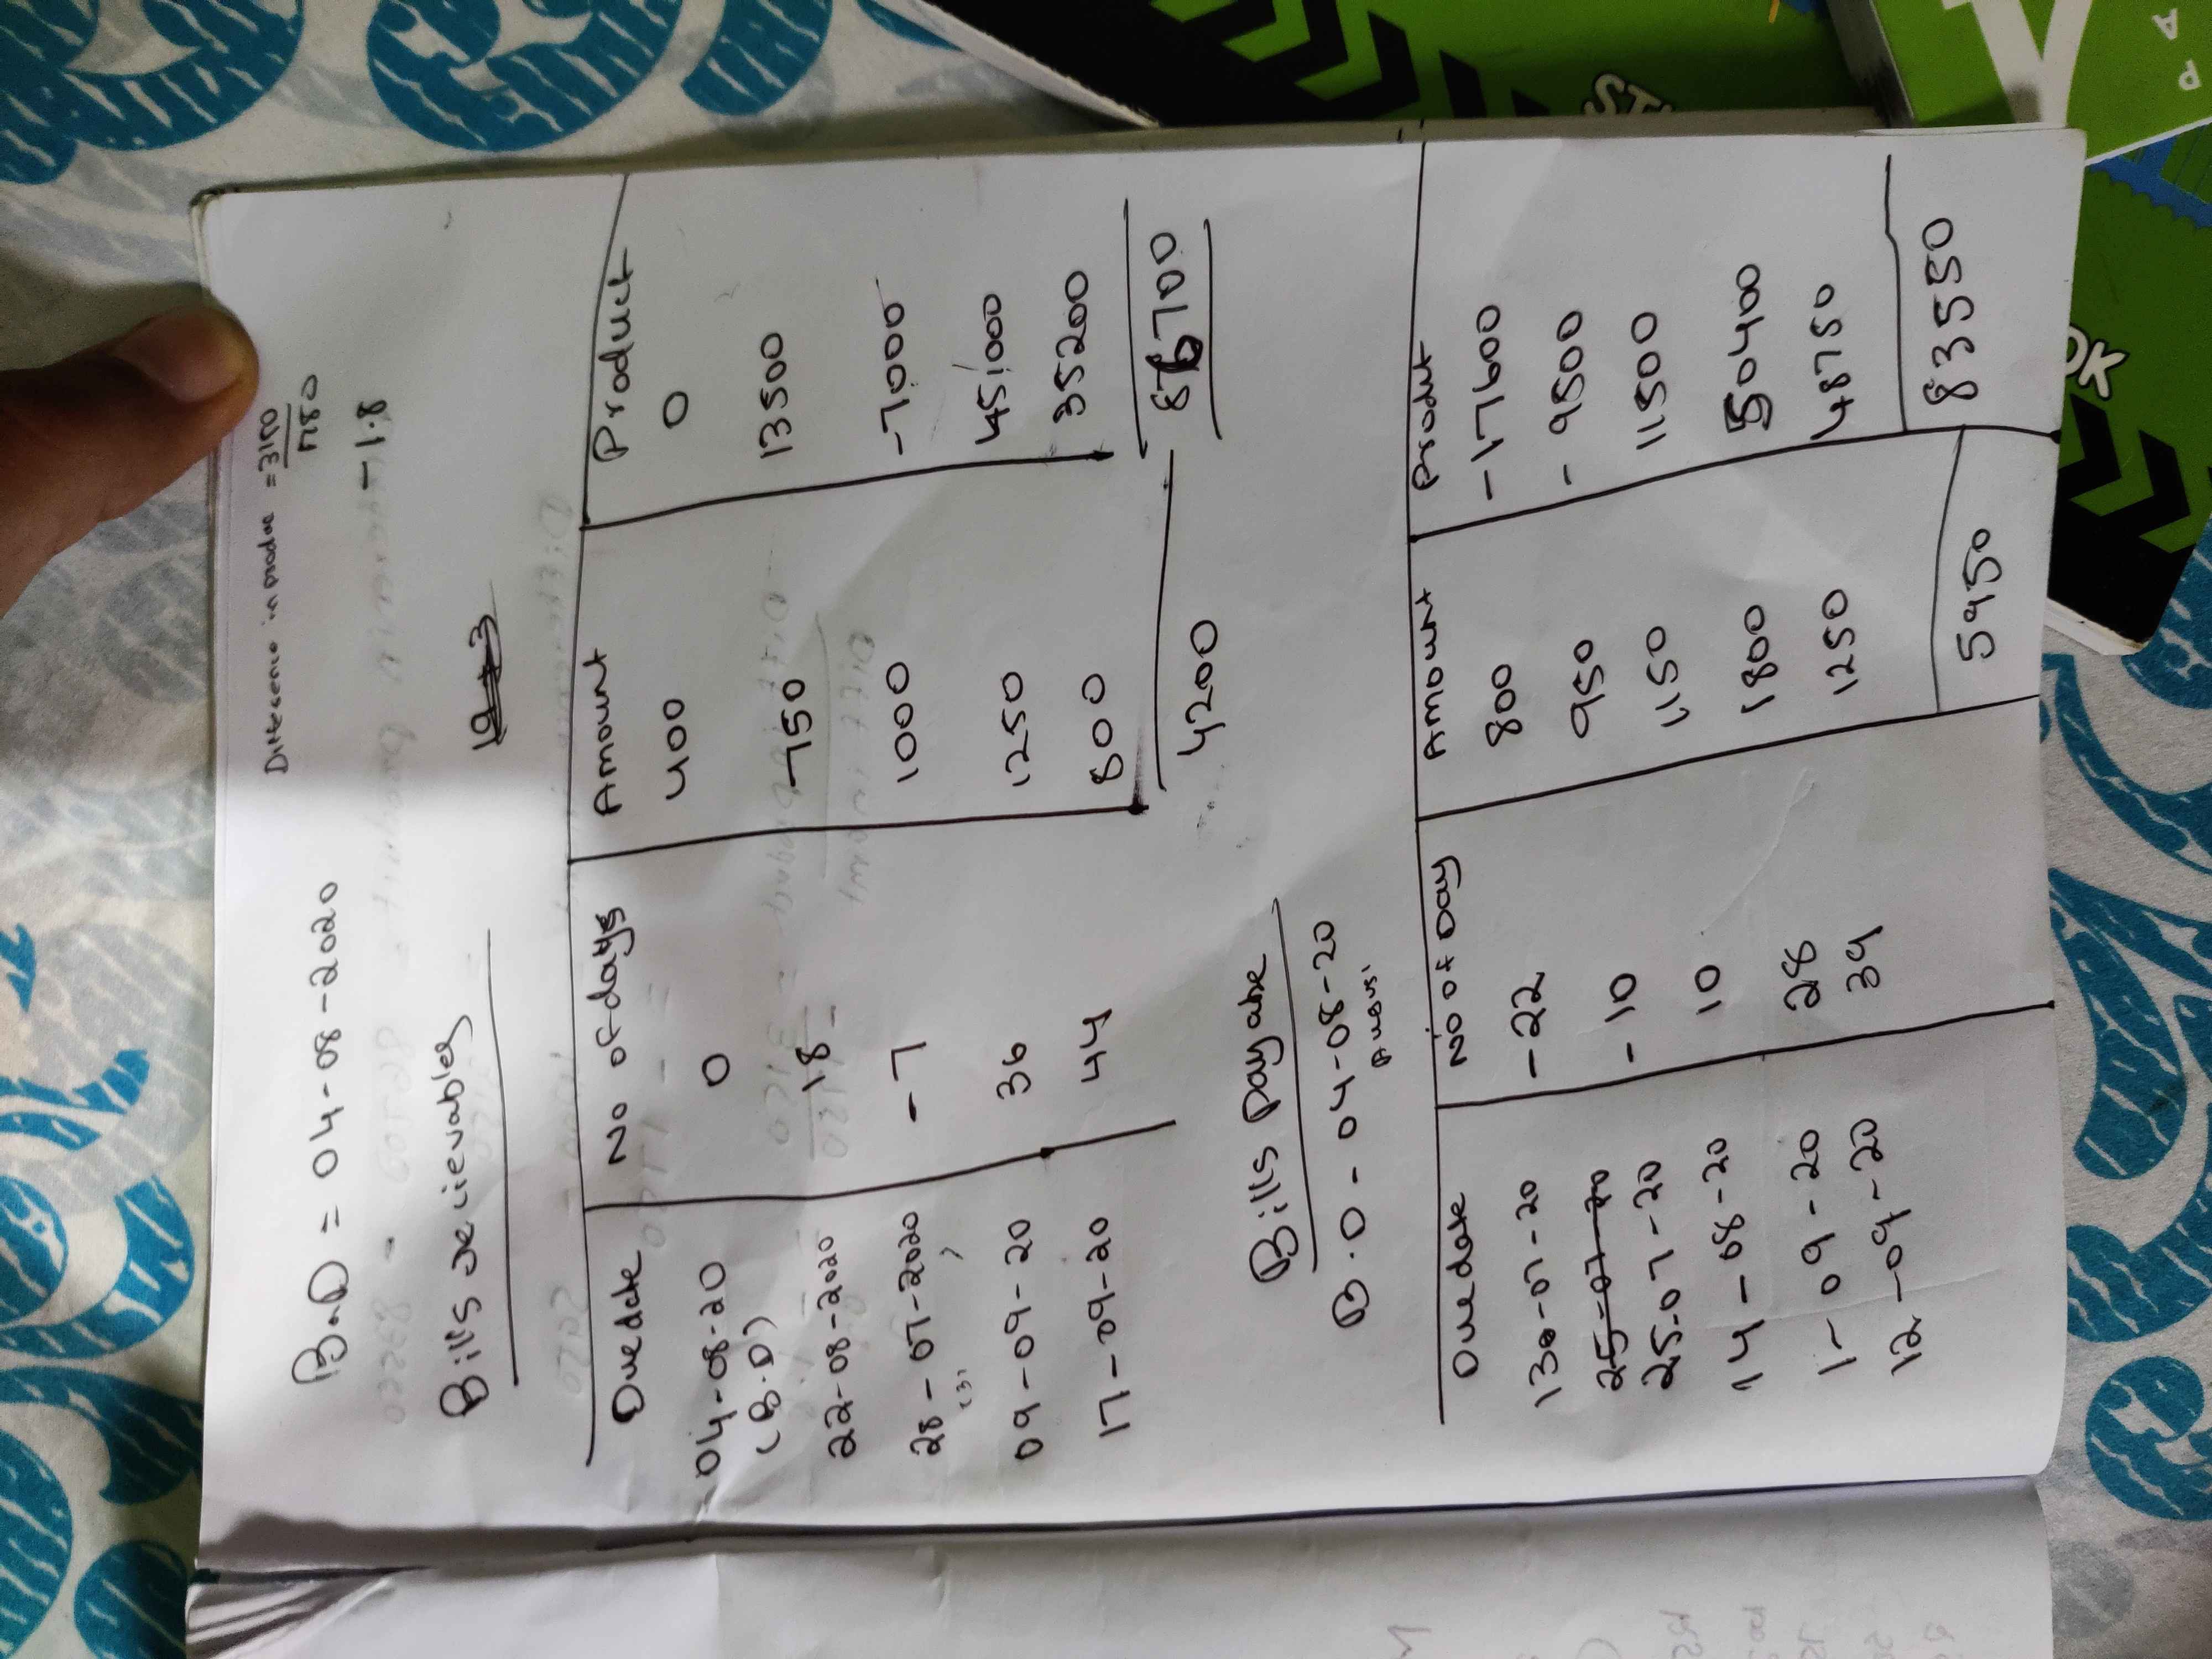 Difference in produc = 3150
1780
- 1.8
B.D = 04-08-2020
Bills recievables
Due date No of days Amount Product
04-08-20 0 400 0
(B.D)
22-08-2020 18 750 13500
28-07-2020 -7 1000 -7000
(3)
09-09-20 36 1250 45,000
17-09-20 44 800 35200
4200 86700
Bills Payable
B.D - 04-08-20
Due date No of Day Amount Product
13-07-20 -22 800 -17600
25-07-20
25-07-20 -10 950 -9500
14-08-20 10 1150 11500
1-09-20 28 1800 50400
12-09-20 39 1250 48750
5950 83550